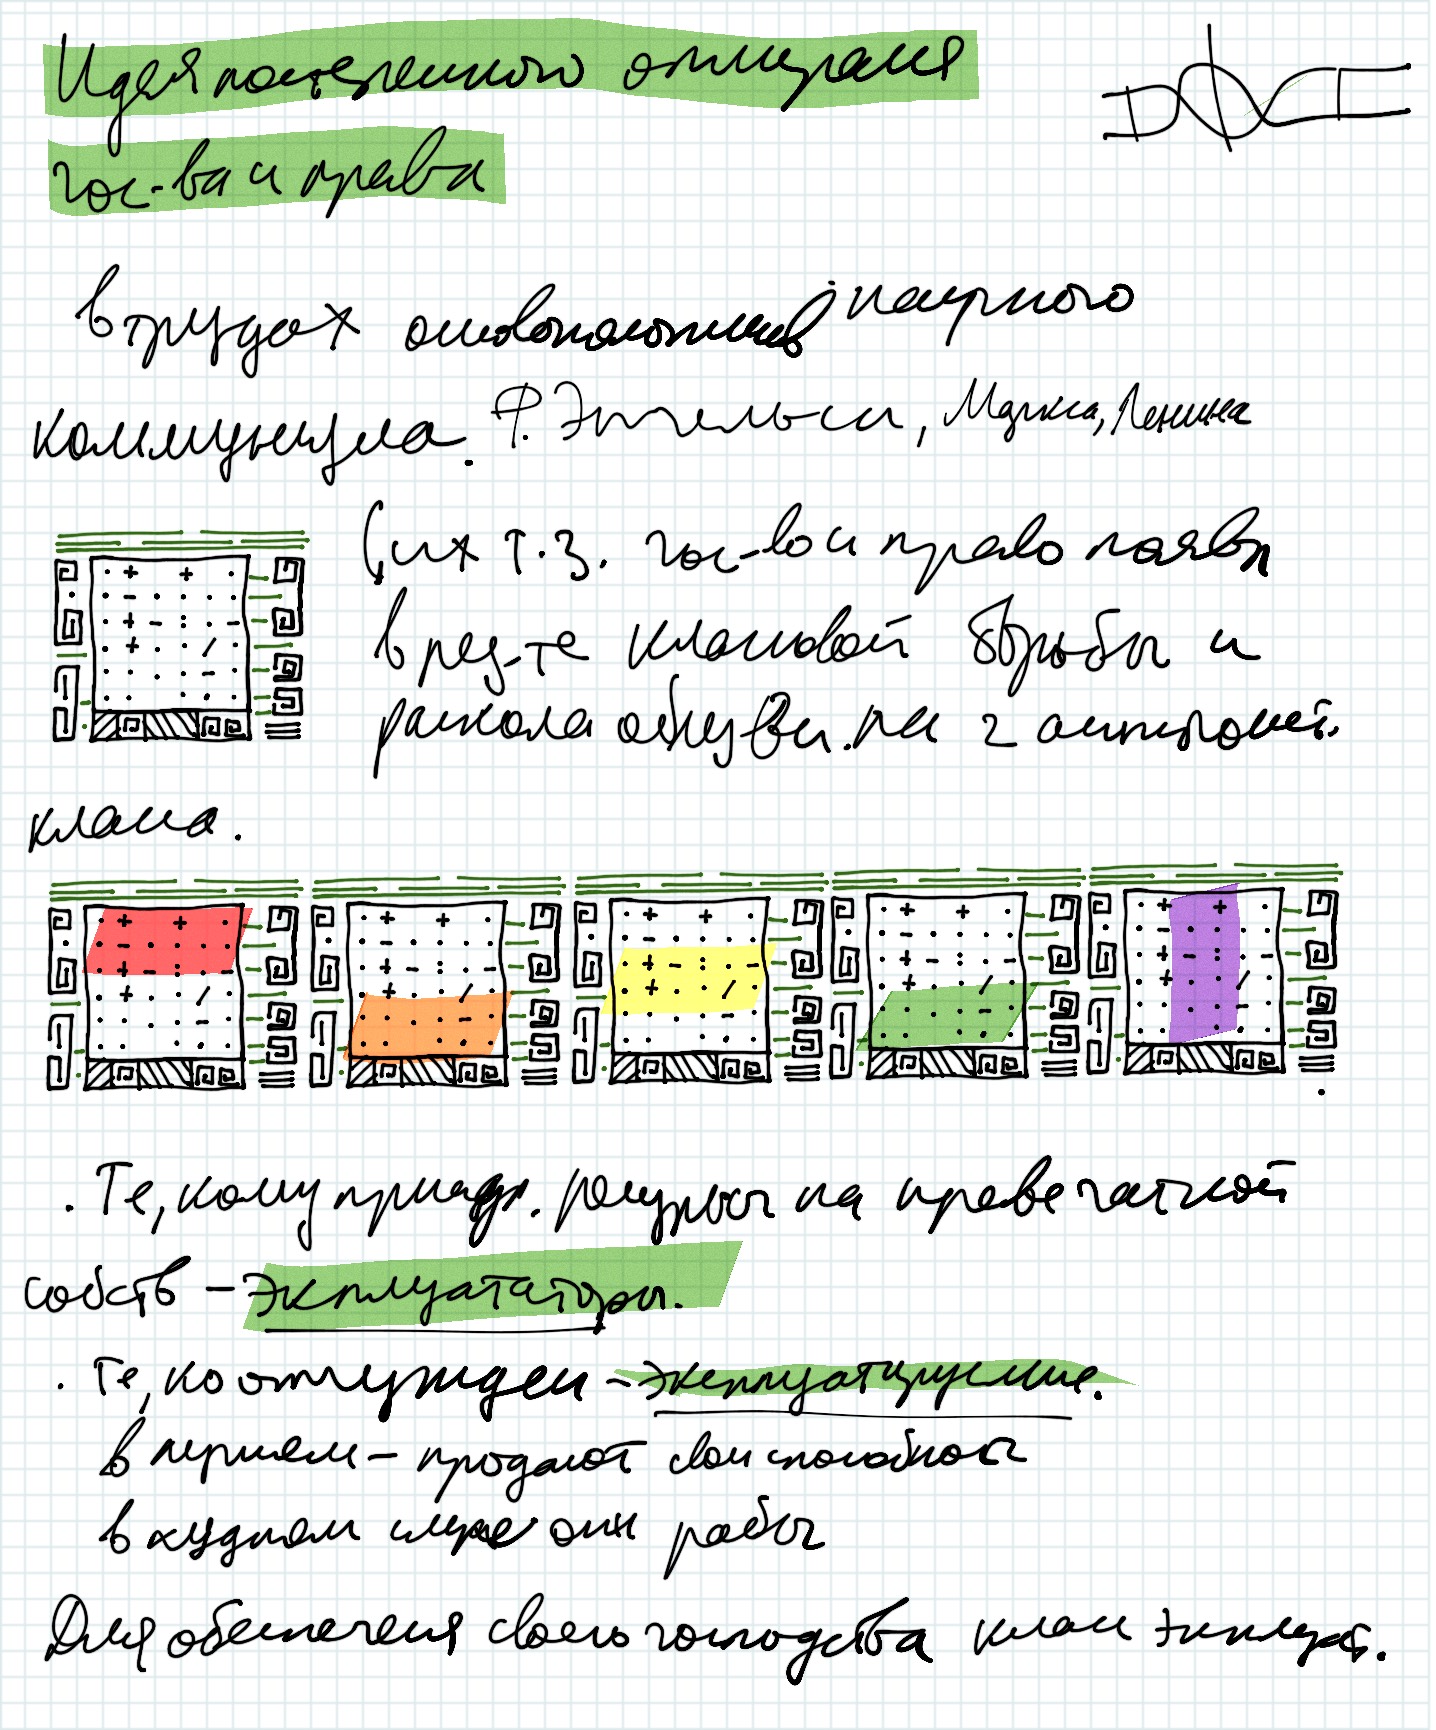 Идея постепенного отмирания
гос-ва и права
в трудах основоположников научного
коммунизма. Ф. Энгельса, Маркса, Ленина
с их т.з. гос-во и право появл
в рез-те классовой борьбы и
раскола общества на 2 антагонист.
класса.
. Те, кому принадл. ресурсы на праве частной
собств – эксплуататоры.
. Те, кто отчужден – эксплуатируемые.
в лучшем – продают свои способност
в худшем случае они рабы
Для обеспечения своего господства класс эксплуат.